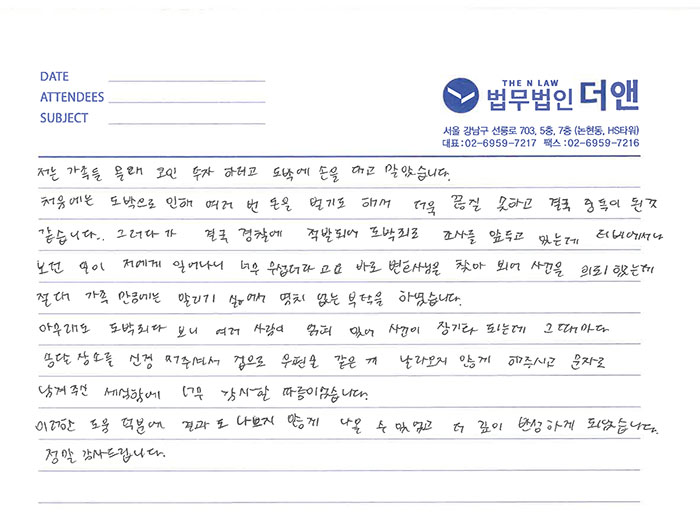 DATE
ATTENDEES
SUBJECT
THE N LAW
법무법인 더앤
서울 강남구 선릉로 703, 5층, 7층 (논현동, HS타워)
대표 : 02-6959-7217 팩스 : 02-6959-7216
저는 가족들 몰래 코인 투자 하려고 도박에 손을 대고 말았습니다.
처음에는 도박으로 인해 여러 번 돈을 벌기도 해서 더욱 끊질 못하고 결국 중독이 된것
같습니다.. 그러다가 결국 경찰에 적발되어 도박죄로 조사를 앞두고 있는데 티비에서나
보던 일이 저에게 일어나니 너무 무섭더라고요 바로 변호사님을 찾아 뵈어 사건을 의뢰 했는데
절대 가족 만큼에는 알리기 싫어서 염치 없는 부탁을 하였습니다.
아무래도 도박죄다 보니 여러 사람이 얽혀 있어 사건이 장기화 되는데 그때마다
송달 장소를 신경 써주셔서 집으로 우편물 같은 게 날라오지 않게 해주시고 문자로
남겨주신 세심함에 너무 감사할 따름이었습니다.
이러한 도움 덕분에 결과도 나쁘지 않게 나올 수 있었고 더 깊이 반성하게 되었습니다.
정말 감사드립니다.